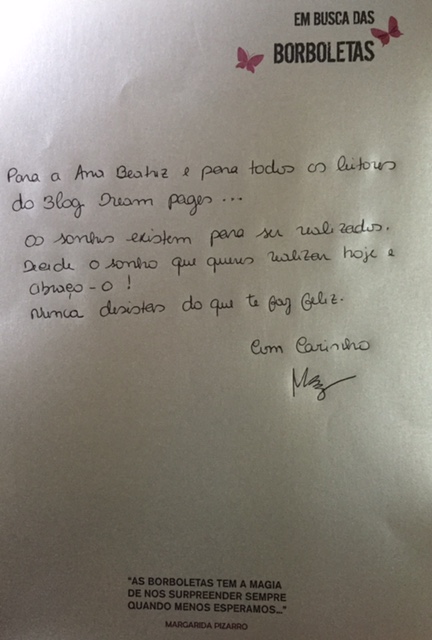 EM BUSCA DAS
BORBOLETAS
Para a Ana Beatriz e para todos os leitores
do Blog Dream pages...
Os sonhos existem para ser realizados.
Decide o sonho que queres realizar hoje e
abraça-o!
Nunca desistas do que te faz feliz.
Com Carinho
"AS BORBOLETAS TEM A MAGIA
DE NOS SURPREENDER SEMPRE
QUANDO MENOS ESPERAMOS..."
MARGARIDA PIZARRO